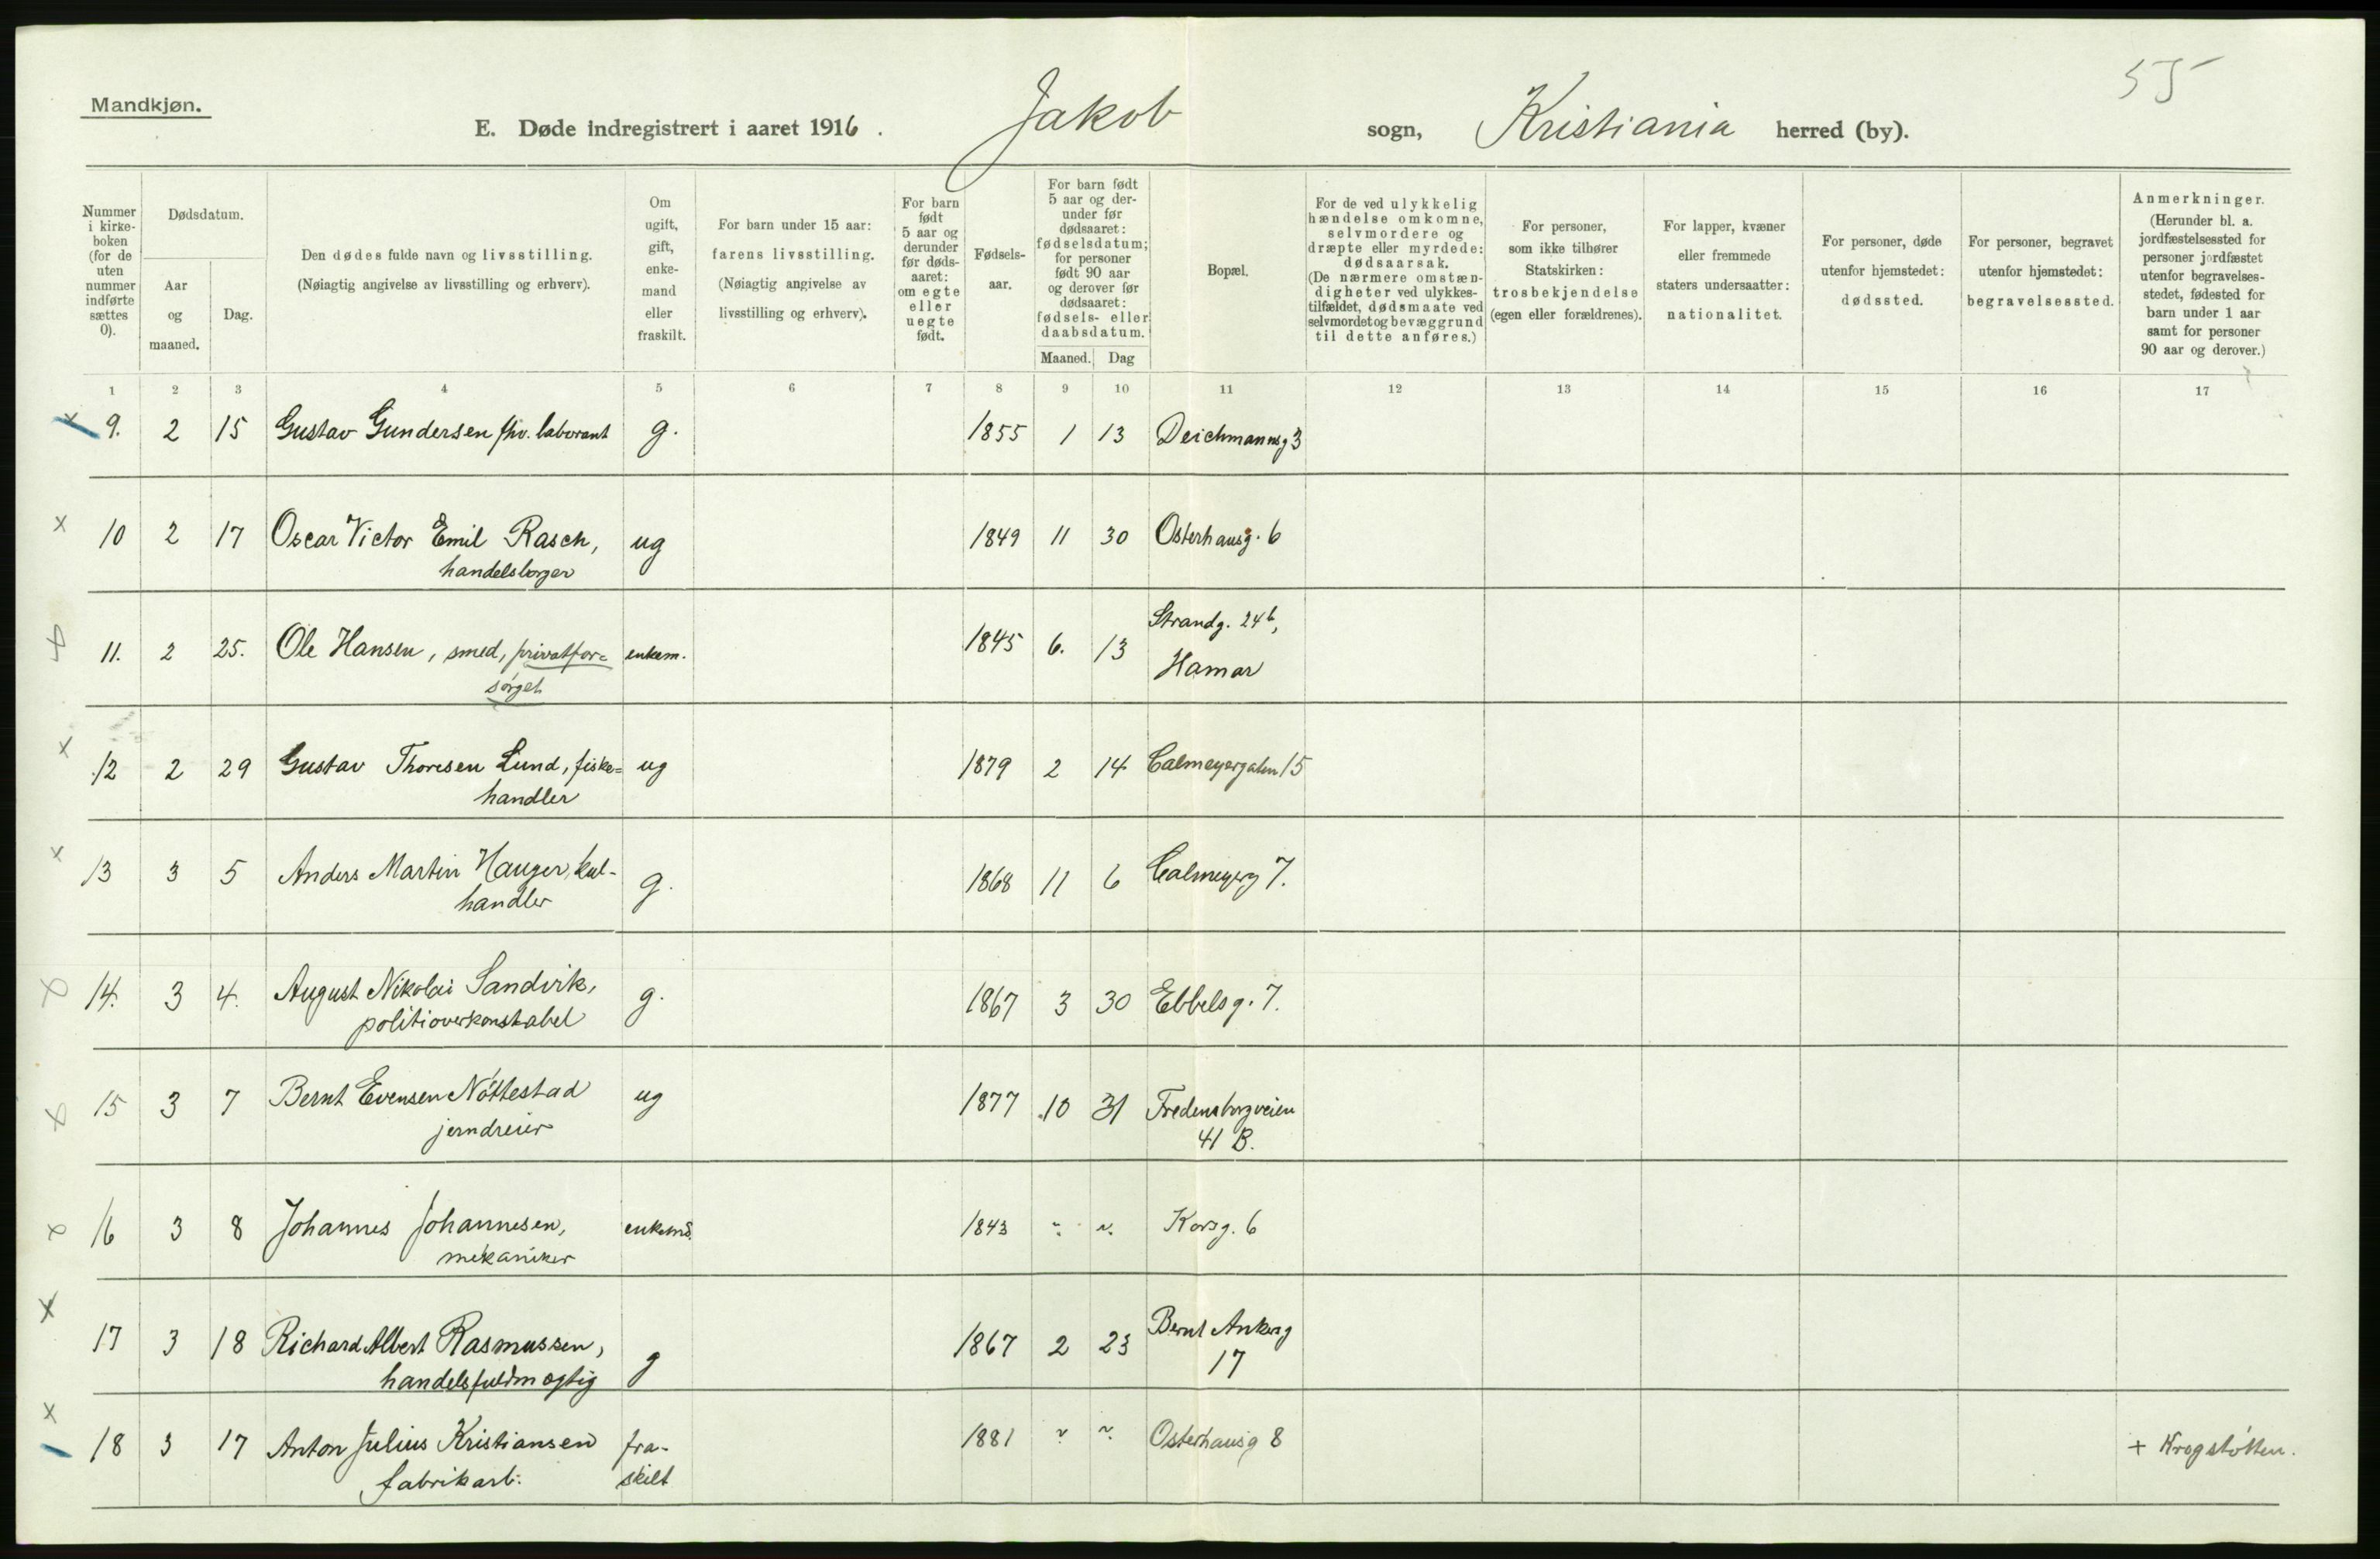 55
Mandkjøn.
E. Døde indregistrert i aaret 1916. Jakob sogn, Kristiania herred (by).
Nummer i kirke-boken (for de uten nummer indførte sættes 0).
Dødsdatum.
Aar og maaned.
Dag.
Den dødes fulde navn og livsstilling.
(Nøiagtig angivelse av livsstilling og erhverv).
Om ugift, gift, enke-mand eller fraskilt.
For barn under 15 aar:
farens livsstilling.
(Nøiagtig angivelse av
livsstilling og erhverv).
For barn født 5 aar og derunder før døds-aaret: om egte eller uegte født.
Fødsels-aar.
For barn født 5 aar og der-under før dødsaaret: fødselsdatum; for personer født 90 aar og derover før dødsaaret: fødsels- eller daabsdatum.
Maaned. Dag
Bopæl.
For de ved ulykkelig hændelse omkomne, selvmordere og dræpte eller myrdede: dødsaarsak. (De nærmere omstæn-digheter ved ulykkes-tilfældet, dødsmaate ved selvmordet og bevæggrund til dette anføres.)
For personer, som ikke tilhører Statskirken: trosbekjendelse (egen eller forældrenes).
For lapper, kvæner eller fremmede staters undersaatter: nationalitet.
For personer, døde utenfor hjemstedet: dødssted.
For personer, begravet utenfor hjemstedet: begravelsessted.
Anmerkninger.
(Herunder bl. a. jordfæstelsessted for personer jordfæstet utenfor begravelses-stedet, fødested for barn under 1 aar samt for personer 90 aar og derover.)
1 2 3 4 5 6 7 8 9 10 11 12 13 14 15 16 17
9. 2 15 Gustav Gundersen fhv. laborant g. 1855 1 13 Deichmannsg 3
10 2 17 Oscar Victor Emil Rasch, ug 1849 11 30 Osterhausg. 6
handelsborger
11. 2 25. Ole Hansen, smed, privatfor= enkem. 1845 6. 13 Strandg. 24b,
sørget Hamar
12 2 29 Gustav Thoresen Lund, fiske= ug 1879 2 14 Calmeyergaten 15
handler
13 3 5 Anders Martin Hauger, kul- g. 1868 11 6 Calmeyerg 7.
handler
14. 3 4. August Nikolai Sandvik, g. 1867 3 30 Ebbelsg. 7.
politioverkonstabel
15 3 7 Bernt Evensen Nøttestad ug 1877 10 31 Fredensborgveien
jerndreier 41 B.
16 3 8 Johannes Johannesen, enkemd. 1843 " " Korsg. 6
mekaniker
17 3 18 Richard Albert Rasmussen, g 1867 2 23 Bernt Ankersg
handelsfuldmægtig 17
18 3 17 Anton Julius Kristiansen fra- 1881 " " Osterhausg 8 + Krogstøtten.
fabrikarb. skilt